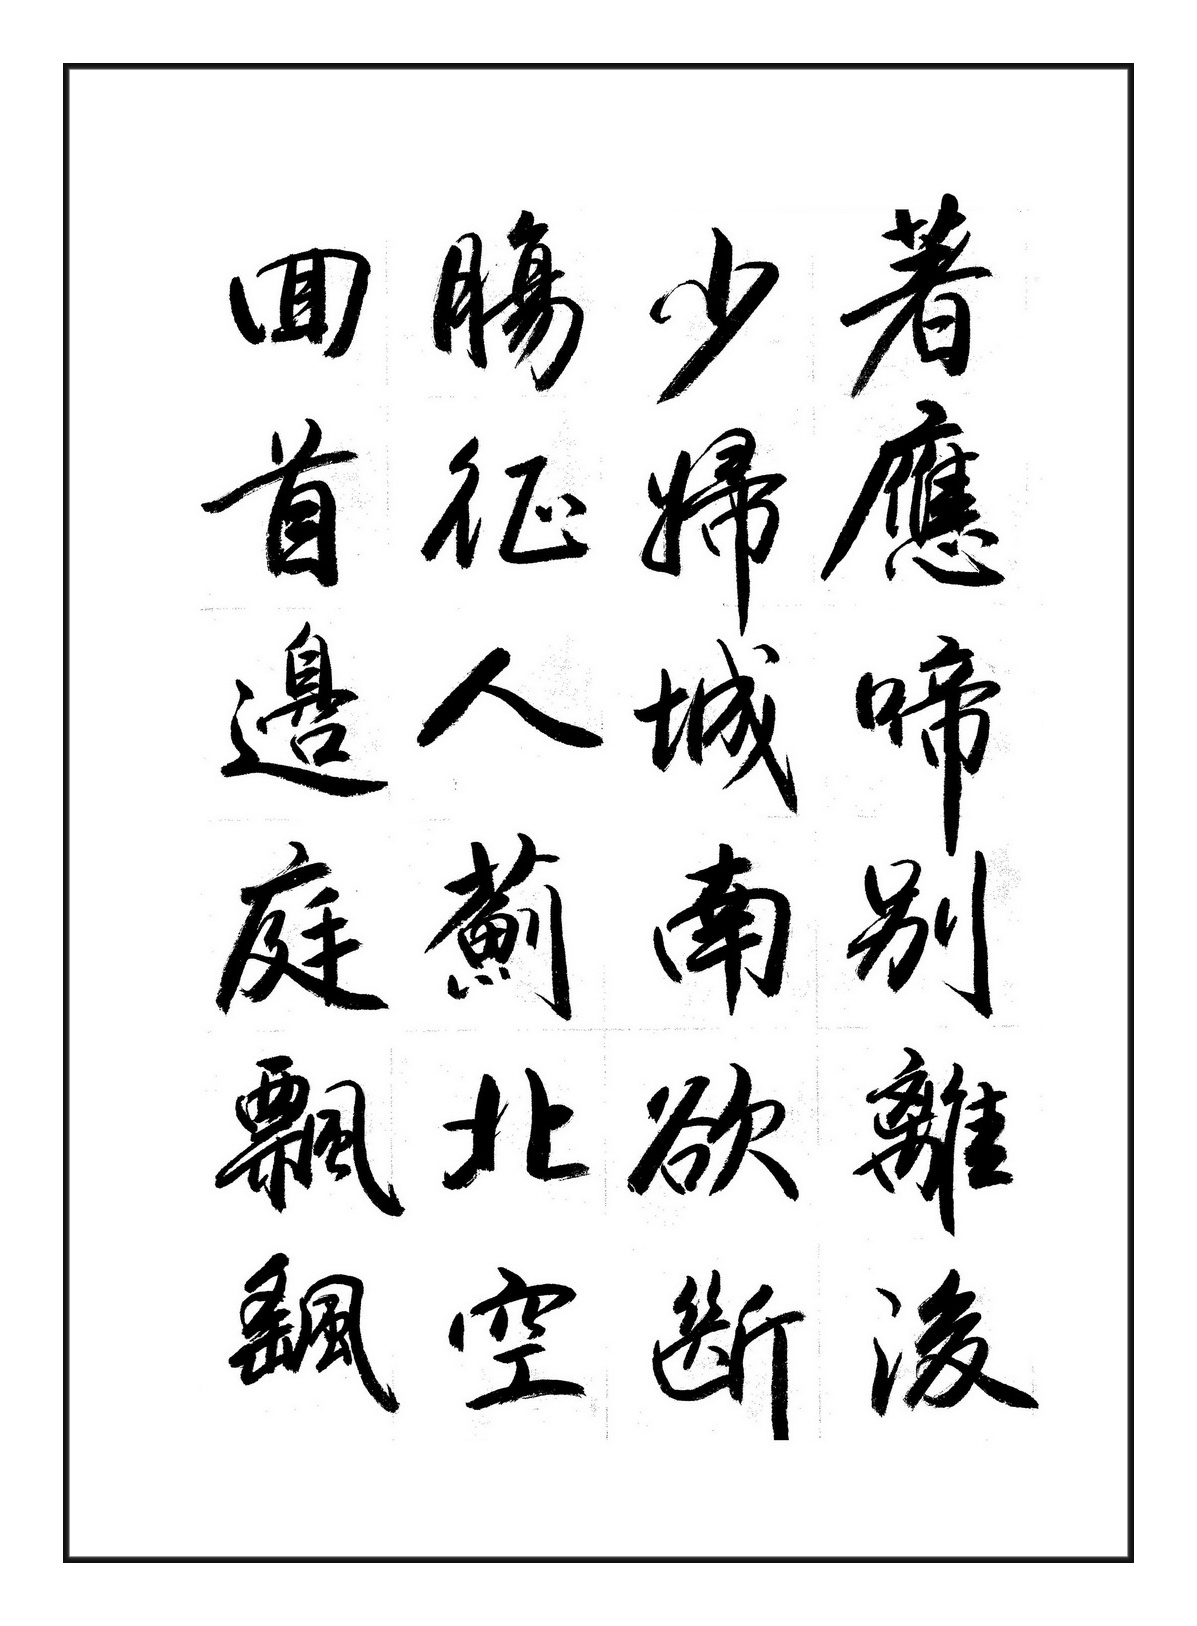 著應啼別離後
少婦城南欲斷
腸征人薊北空
回首邊庭飄颻